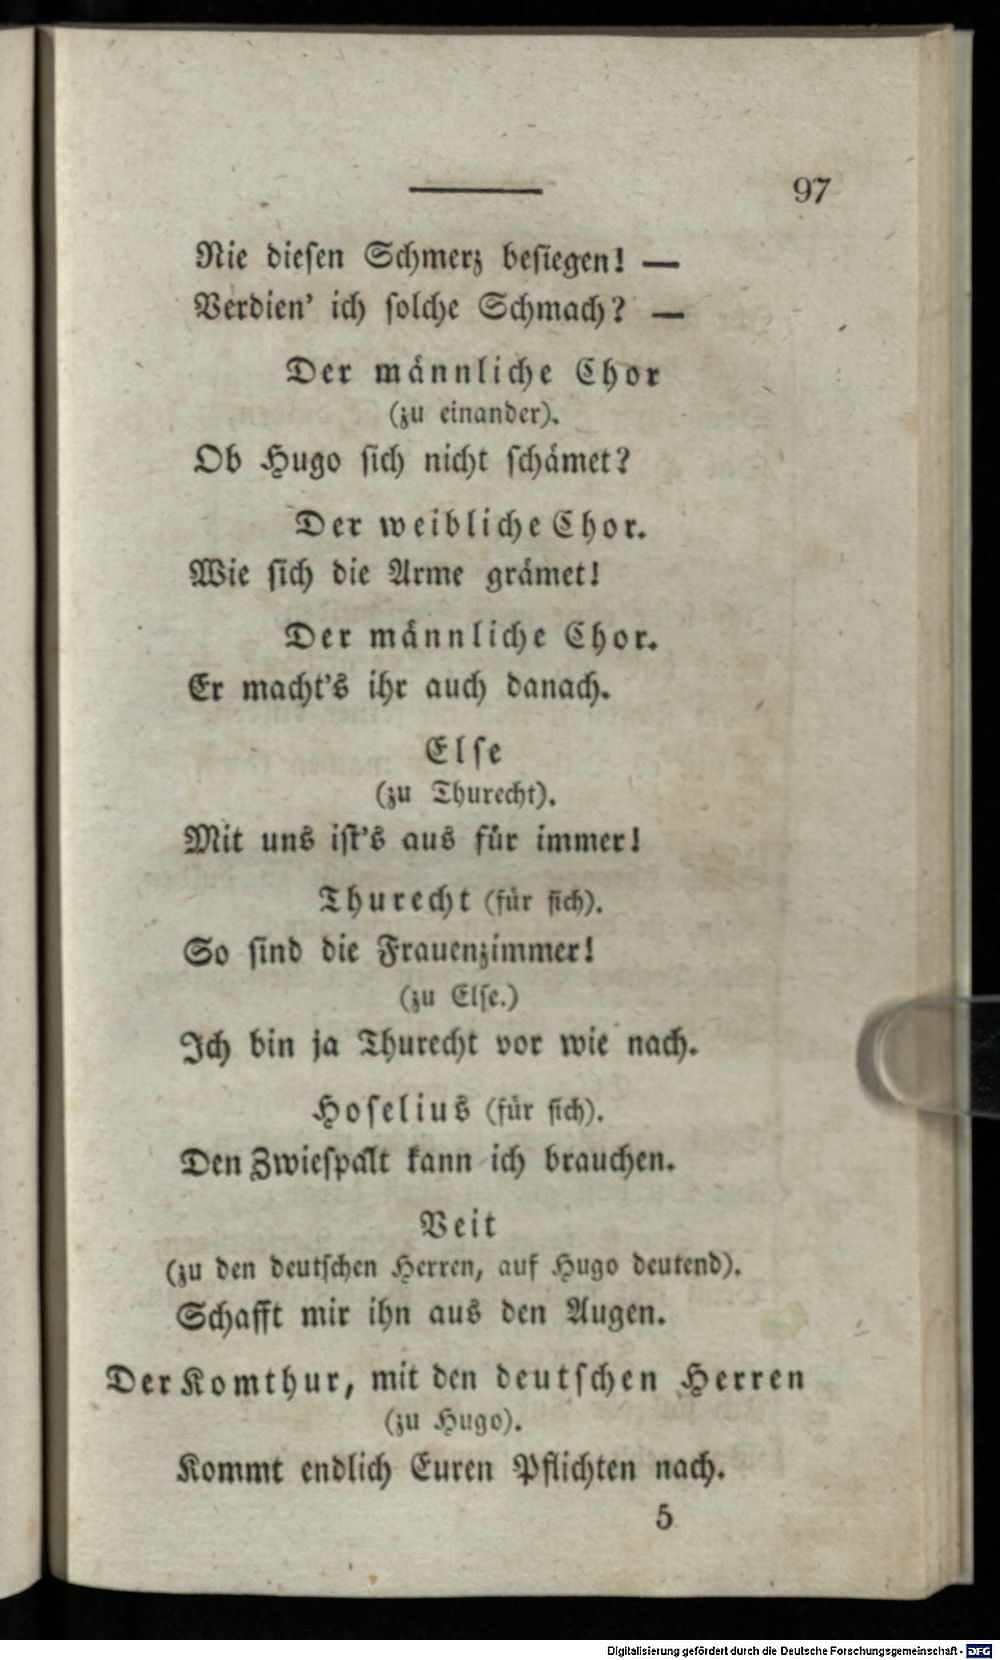 97
Nie diesen Schmerz besiegen! —
Verdien' ich solche Schmach? —
Der männliche Chor
(zu einander).
Ob Hugo sich nicht schämet?
Der weibliche Chor.
Wie sich die Arme grämet!
Der männliche Chor.
Er macht's ihr auch danach.
Else
(zu Thurecht).
Mit uns ist's aus für immer!
Thurecht (für sich).
So sind die Frauenzimmer!
(zu Else.)
Ich bin ja Thurecht vor wie nach.
Hoselius (für sich).
Den Zwiespalt kann ich brauchen.
Veit
(zu den deutschen Herren, auf Hugo deutend).
Schafft mir ihn aus den Augen.
Der Komthur, mit den deutschen Herren
(zu Hugo).
Kommt endlich Euren Pflichten nach.
5
Digitalisierung gefördert durch die Deutsche Forschungsgemeinschaft - DFG